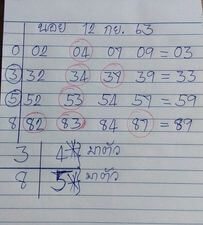 นอย 12 กย. 63
0 02 04 07 09 = 03
3 32 34 37 39 = 33
5 52 53 54 57 = 59
8 82 83 84 87 = 89
3 4* มาตัว
8 5* มาตัว